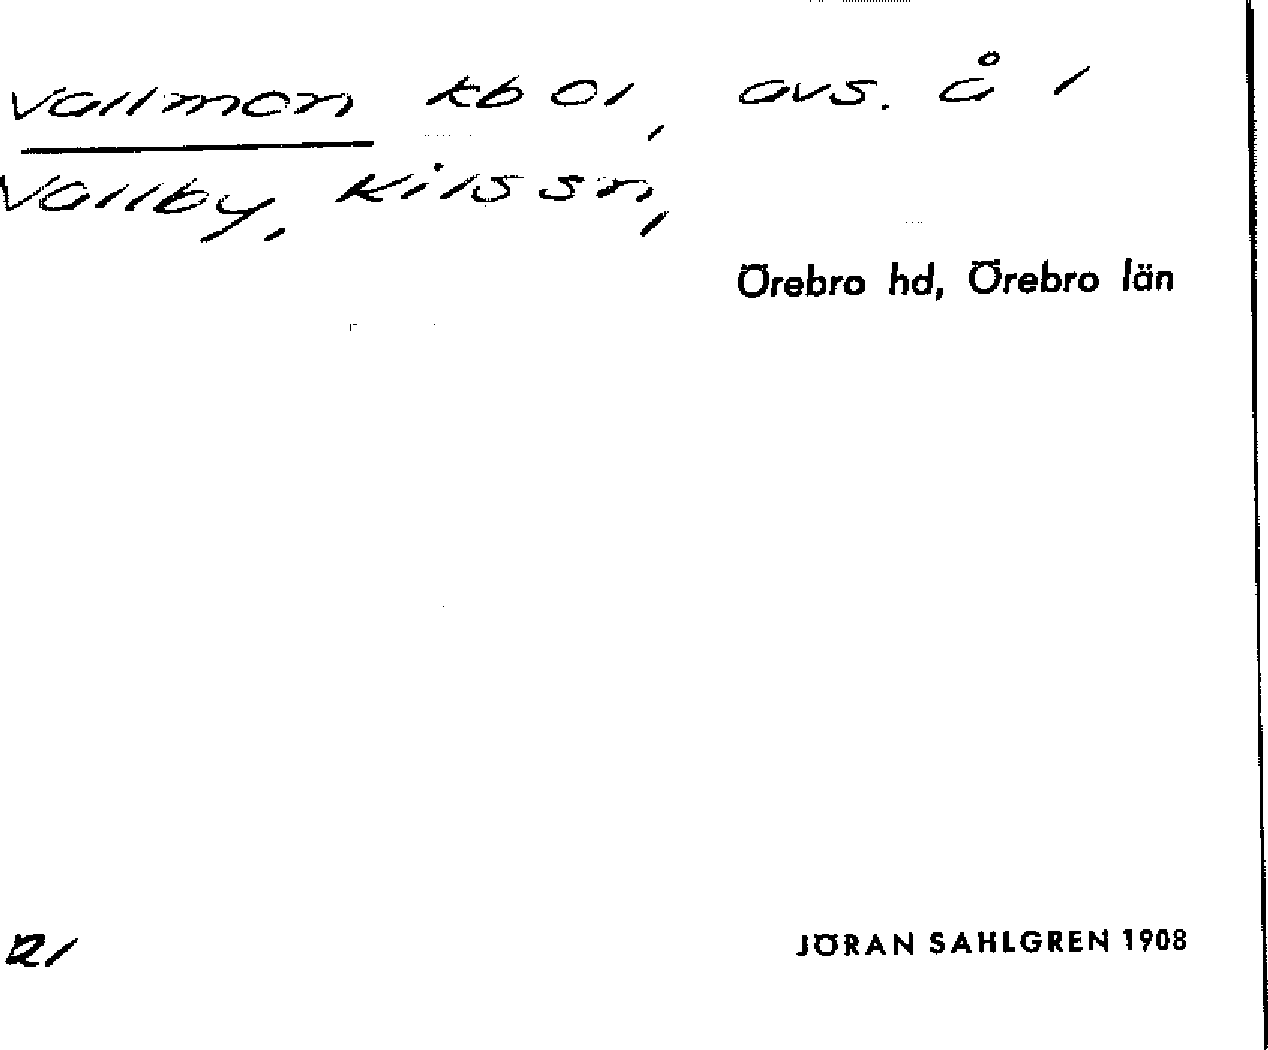 Vallmon kb Ol, avs. å 1
Vallby, Kils sn,
Örebro hd, Örebro län
JÖRAN SAHLGREN 1908